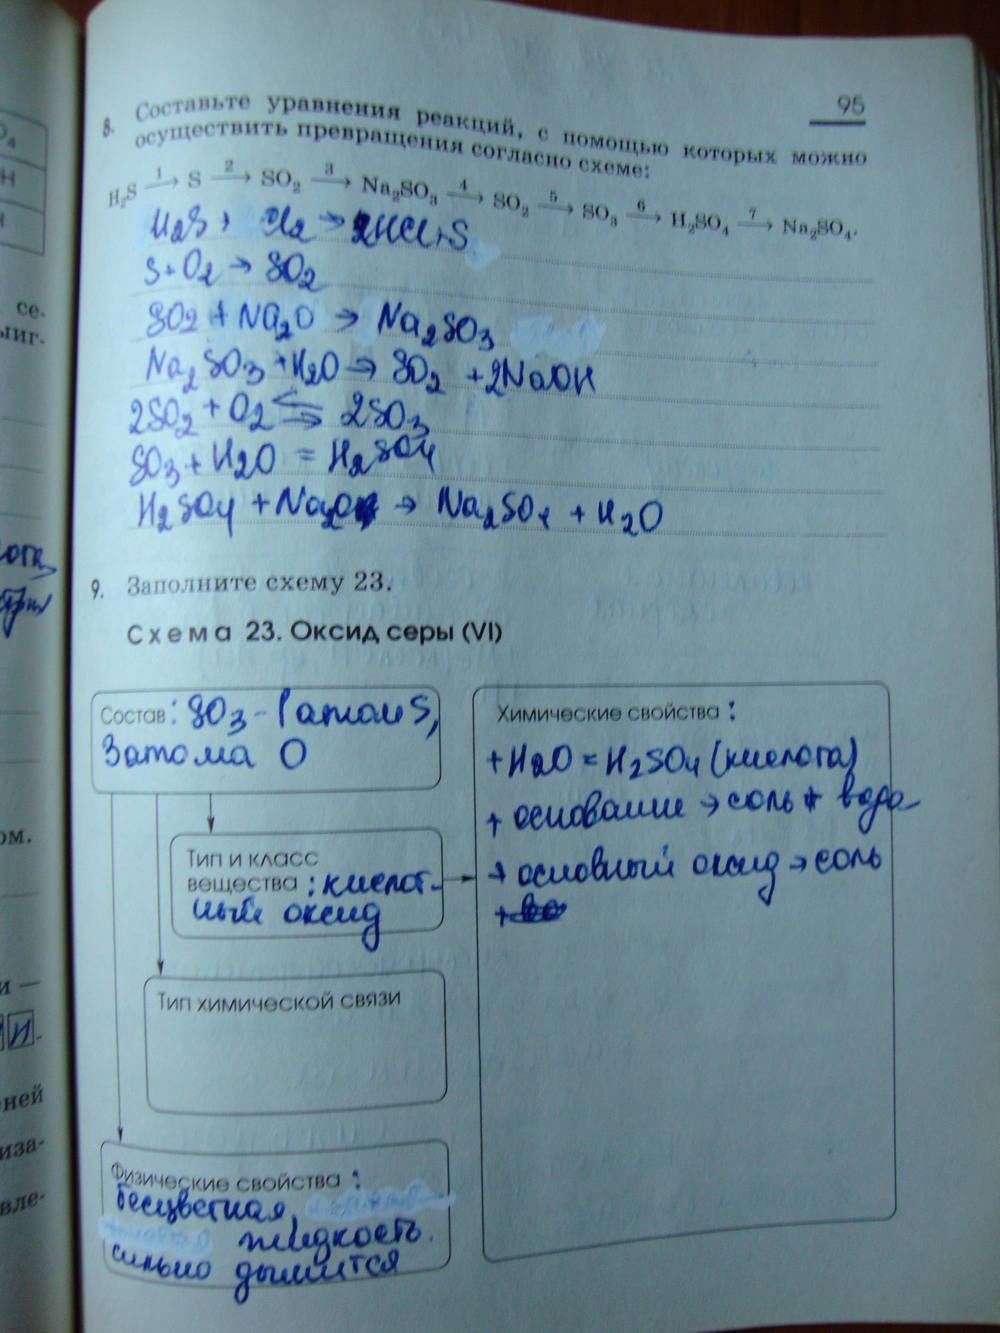 95
8. Составьте уравнения реакций, с помощью которых можно
осуществить превращения согласно схеме:
H₂S →¹ S →² SO₂ →³ Na₂SO₃ →⁴ SO₂ →⁵ SO₃ →⁶ H₂SO₄ →⁷ Na₂SO₄.
H₂S + Cl₂ → 2HCl + S
S + O₂ → SO₂
SO₂ + Na₂O → Na₂SO₃
Na₂SO₃ + H₂O → SO₂ + 2NaOH
2SO₂ + O₂ ⇆ 2SO₃
SO₃ + H₂O = H₂SO₄
H₂SO₄ + Na₂O → Na₂SO₄ + H₂O
9. Заполните схему 23.
Схема 23. Оксид серы (VI)
Состав: SO₃ - 1 атом S,
3 атома O
Тип и класс
вещества: кислот-
ный оксид
Тип химической связи
Физические свойства:
бесцветная,
жидкость.
сильно дымится
Химические свойства:
+ H₂O = H₂SO₄ (кислота)
+ основание → соль + вода
+ основный оксид → соль
+
се-
ом.
и —
и.
ней
иза-
вле-